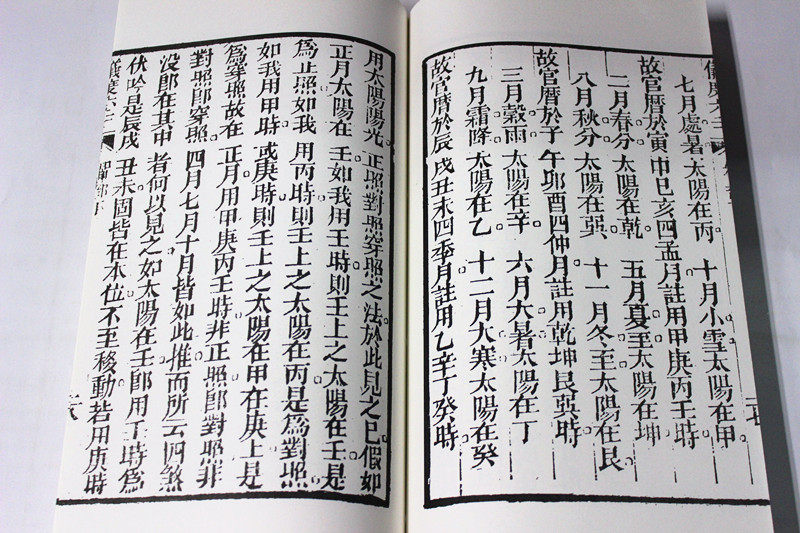 七月處暑太陽在丙 十月小雪太陽在甲
故官曆於寅申巳亥四孟月註用甲庚丙壬時
二月春分太陽在乾 五月夏至太陽在坤
八月秋分太陽在巽 十一月冬至太陽在艮
故官曆於子午卯酉四仲月註用乾坤艮巽時
三月穀雨太陽在辛 六月大暑太陽在丁
九月霜降太陽在乙 十二月大寒太陽在癸
故官曆於辰戌丑未四季月註用乙辛丁癸時
用太陽陽光正照對照穿照之法於此見之已假如
正月太陽在壬如我用壬時則壬上之太陽在壬是
為正照如我用丙時則壬上之太陽在丙是為對照
如我用甲時或庚時則壬上之太陽在甲在庚上是
為穿照故在正月用甲庚丙壬時非正照卽對照非
對照卽穿照四月七月十月皆如此推而所云四煞
沒卽在其中者何以見之如太陽在壬卽用壬時為
伏吟是辰戌丑未固皆在本位不至移動若用庚時
儀度六壬